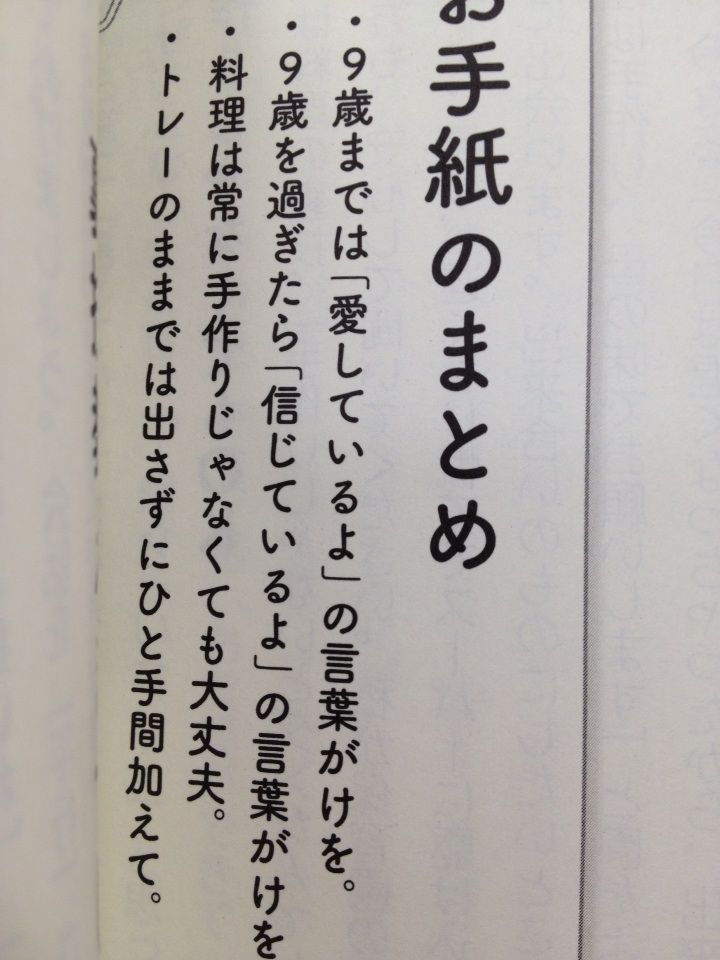 お手紙のまとめ
・9歳までは「愛しているよ」の言葉がけを。
・9歳を過ぎたら「信じているよ」の言葉がけを
・料理は常に手作りじゃなくても大丈夫。
・トレーのままでは出さずにひと手間加えて。